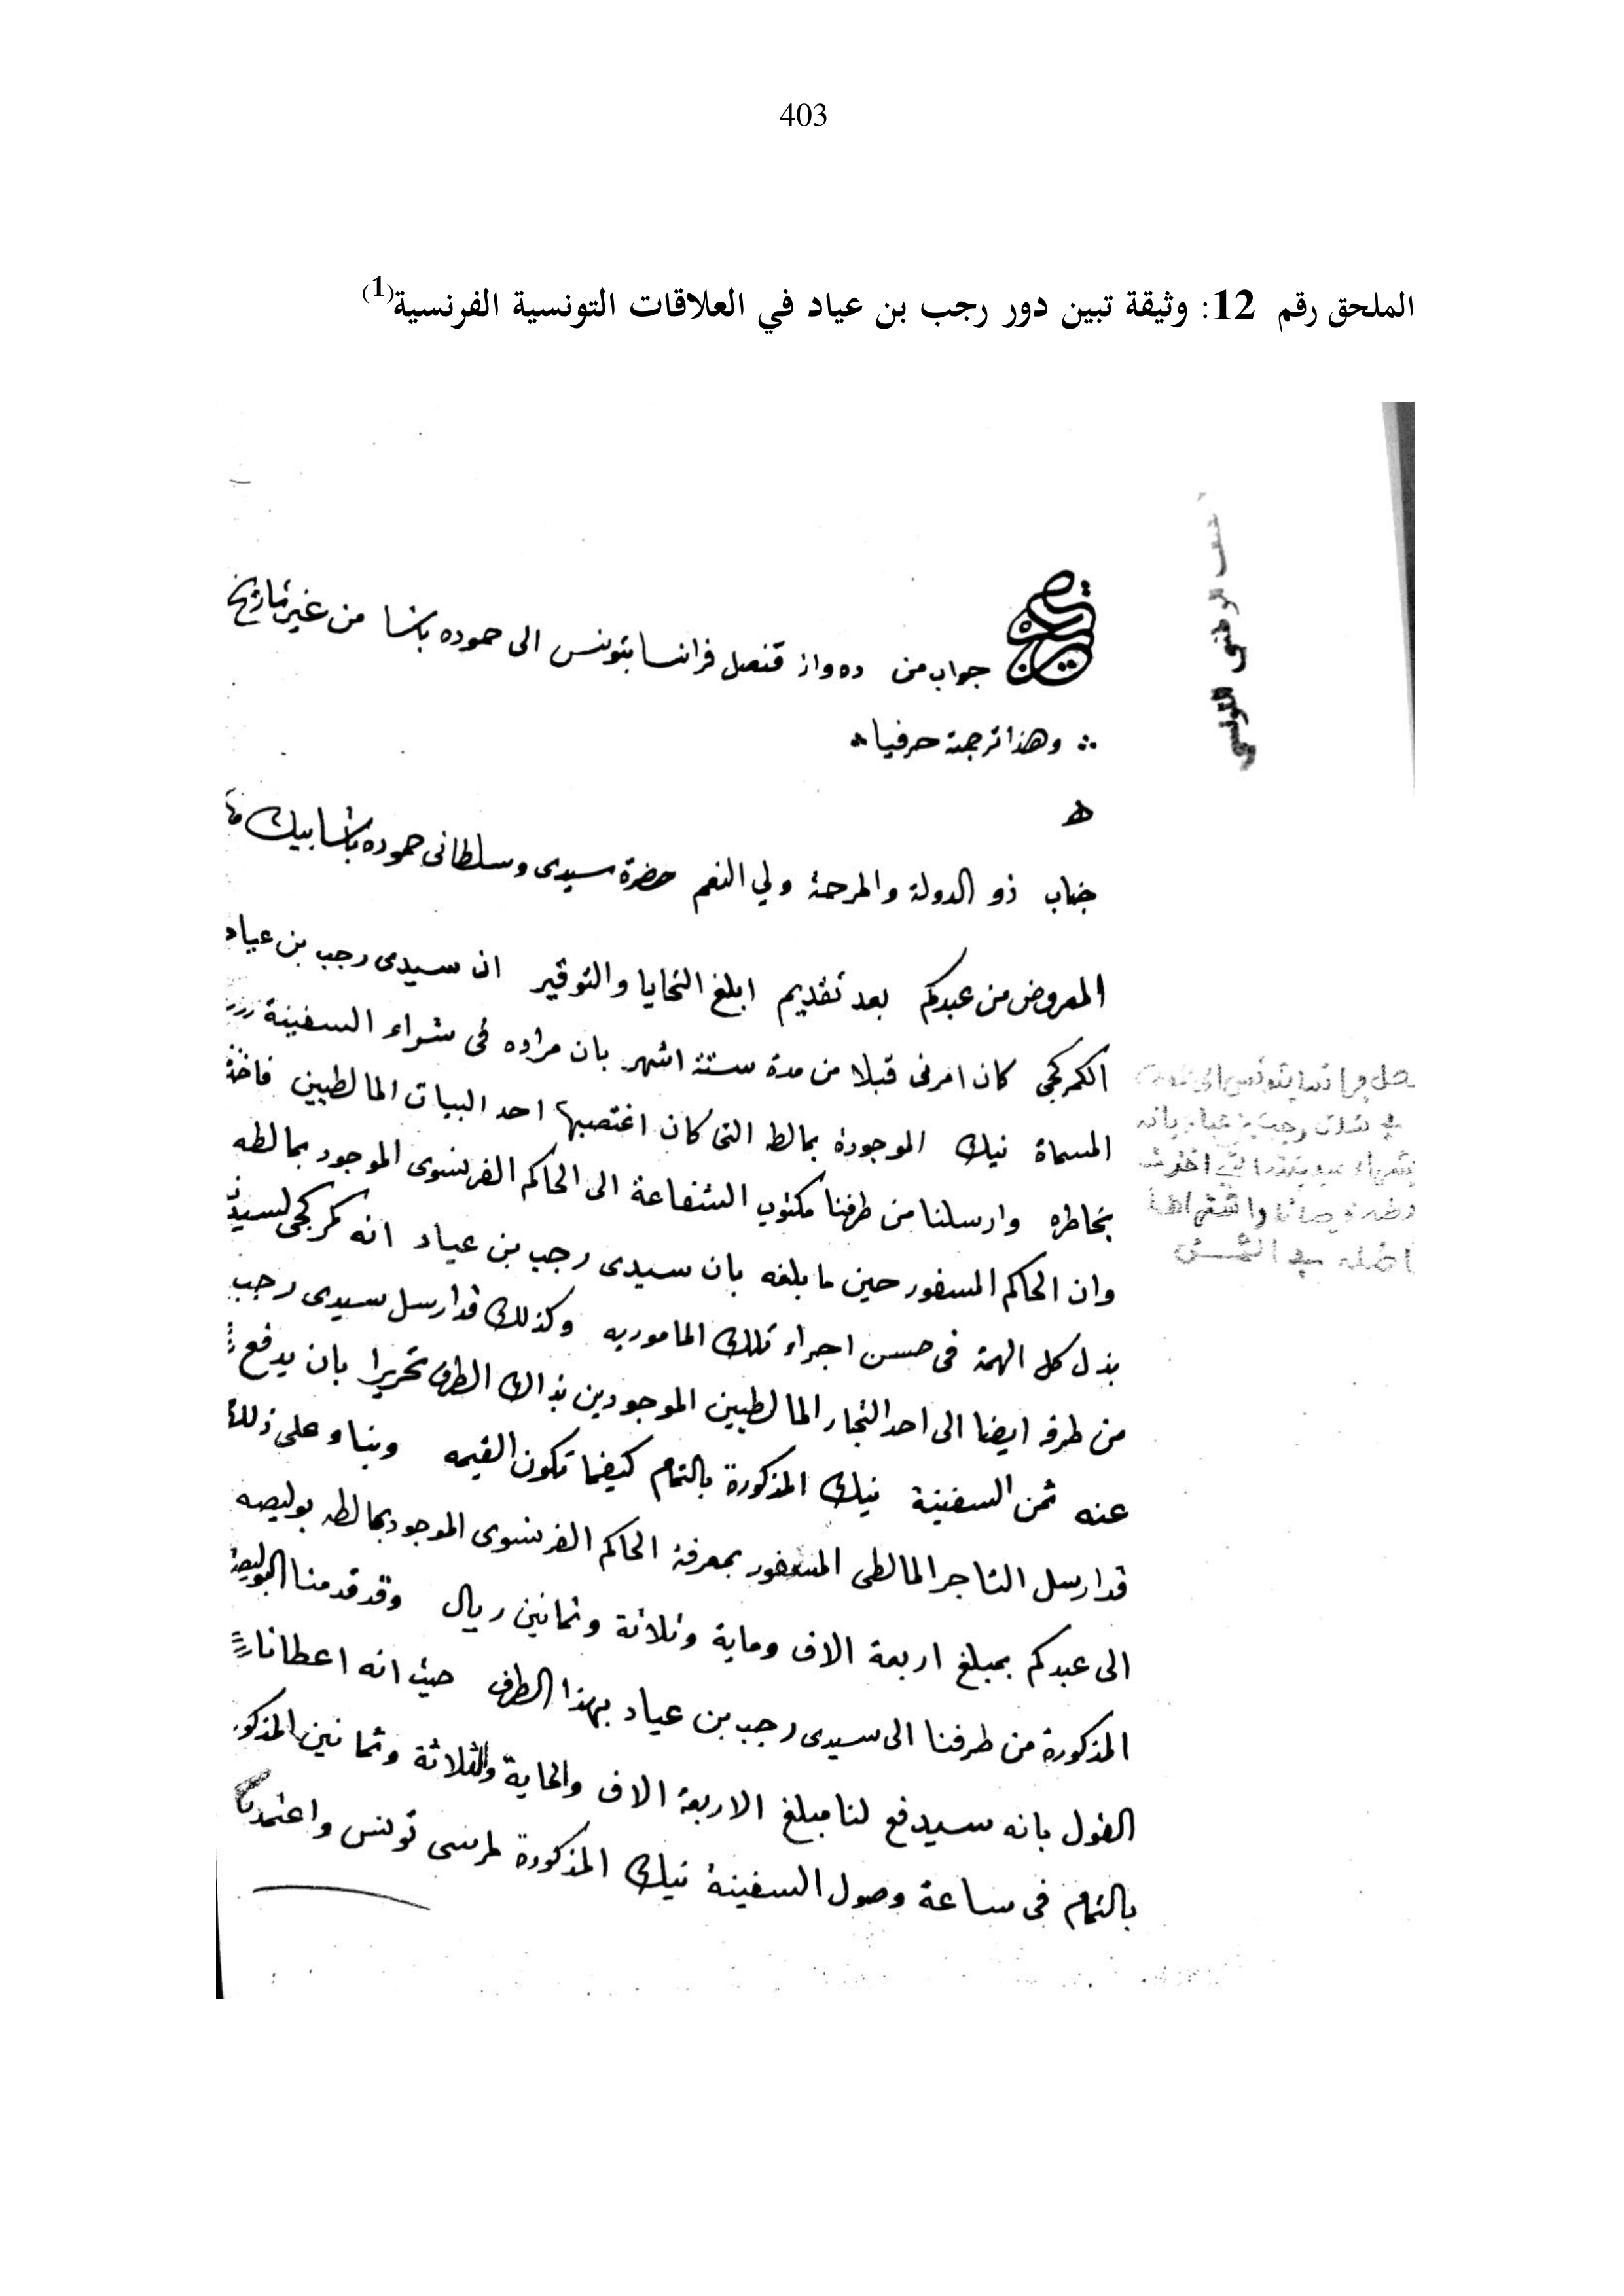 403
الملحق رقم 12: وثيقة تبين دور رجب بن عياد في العلاقات التونسية الفرنسية(1)
جواب من ده واز قنصل فرانسا بتونس الى حموده باشا من غير تاريخ
وهذا ترجمة حرفيا
جناب ذو الدولة والمرحمة ولي النعم حضرة سيدى وسلطانى حموده باشا بيك
المعروض من عبدكم بعد تقديم ابلغ التحايا والتوقير ان سيدى رجب بن عياد
الكمركجي كان امرنى قبلا من مدة ستة اشهر بان مراده فى شراء السفينة
المسماة نيك الموجودة بمالطه التى كان اغتصبها احد البيات المالطيين
بخاطره وارسلنا من طرفنا مكتوب الشفاعة الى الحاكم الفرنسوى الموجود بمالطه
وان الحاكم المسفور حين ما بلغه بان سيدى رجب بن عياد انه كمركجى
بذل كل الهمة فى حسن اجراء تلك الماموريه وكذلك قد ارسل سيدى رجب
من طرفه ايضا الى احد التجار المالطيين الموجودين بذاك الطرف تحريرا بان يدفع
عنه ثمن السفينة نيك المذكورة بالتمام كيفما تكون القيمه وبناء على ذلك
قد ارسل التاجر المالطى المسفور بمعرفة الحاكم الفرنسوى الموجود بمالطه بوليصه
الى عبدكم بمبلغ اربعة الاف وماية وثلاثة وثمانين ريال وقد قدمنا البوليصة
المذكورة من طرفنا الى سيدى رجب بن عياد بهذا الطرف حيث انه اعطانا
القول بانه سيدفع لنا مبلغ الاربعة الاف والماية والثلاثة وثمانين المذكور
بالتمام فى ساعة وصول السفينة نيك المذكورة لمرسى تونس